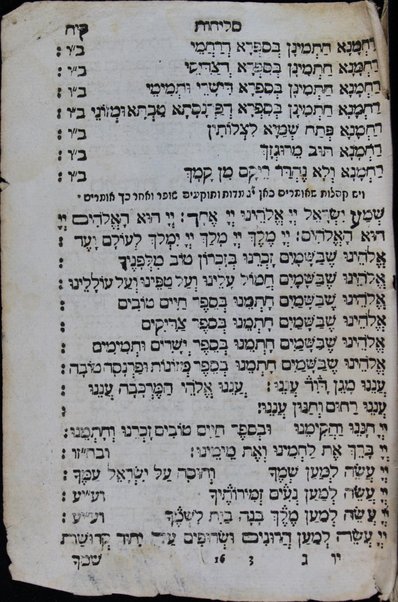 סליחות קיח
רַחֲמָנָא חַתְמִינָן בְּסִפְרָא דְרַחֲמֵי ב״ו :
רַחֲמָנָא חַתְמִינָן בְּסִפְרָא דְצַדִּיקֵי ב״ו :
רַחֲמָנָא חַתְמִינָן בְּסִפְרָא דִישָׁרֵי וּתְמִימֵי ב״ו :
רַחֲמָנָא חַתְמִינָן בְּסִפְרָא דְפַרְנָסָתָא טָבָתָא וּמְזוֹנֵי ב״ו :
רַחֲמָנָא פְּתַח שְׁמַיָא לִצְלוֹתִין ב״ו :
רַחֲמָנָא תוּב מֵרוּגְזָךְ ב״ו :
רַחֲמָנָא וְלָא נֶהְדַּר רֵיקָם מִן קַמָּךְ ב״ו :
ויש קהלות שאומרים כאן י״ג מדות ותוקעים שופר ואחר כך אומרים
שְׁמַע יִשְׂרָאֵל יְיָ אֱלֹהֵינוּ יְיָ אֶחָד : יְיָ הוּא הָאֱלֹהִים יְיָ
הוּא הָאֱלֹהִים : יְיָ מֶלֶךְ יְיָ מָלָךְ יְיָ יִמְלֹךְ לְעוֹלָם וָעֶד :
אֱלֹהֵינוּ שֶׁבַּשָּׁמַיִם זָכְרֵנוּ בְּזִכְרוֹן טוֹב מִלְּפָנֶיךָ :
אֱלֹהֵינוּ שֶׁבַּשָּׁמַיִם חֲמוֹל עָלֵינוּ וְעַל טַפֵּינוּ וְעַל עוֹלָלֵינוּ :
אֱלֹהֵינוּ שֶׁבַּשָּׁמַיִם חָתְמֵנוּ בְּסֵפֶר חַיִּים טוֹבִים :
אֱלֹהֵינוּ שֶׁבַּשָּׁמַיִם חָתְמֵנוּ בְּסֵפֶר צַדִּיקִים :
אֱלֹהֵינוּ שֶׁבַּשָּׁמַיִם חָתְמֵנוּ בְּסֵפֶר יְשָׁרִים וּתְמִימִים :
אֱלֹהֵינוּ שֶׁבַּשָּׁמַיִם חָתְמֵנוּ בְּסֵפֶר מְזוֹנוֹת וּפַרְנָסָה טוֹבָה :
עֲנֵנוּ מָגֵן דָּוִד עֲנֵנוּ : עֲנֵנוּ אֱלֹהֵי הַמֶּרְכָּבָה עֲנֵנוּ
עֲנֵנוּ רַחוּם וְחַנּוּן עֲנֵנוּ :
יְיָ חָנֵּנוּ וַהֲקִימֵנוּ וּבְסֵפֶר חַיִּים טוֹבִים זָכְרֵנוּ וְחָתְמֵנוּ :
יְיָ בָּרֵךְ אֶת לַחְמֵינוּ וְאֶת מֵימֵינוּ :
יְיָ עֲשֵׂה לְמַעַן שְׁמֶךָ וְחוּסָה עַל יִשְׂרָאֵל עַמֶּךָ :
יְיָ עֲשֵׂה לְמַעַן נְעִים זְמִירוֹתֶיךָ וע״ע :
יְיָ עֲשֵׂה לְמַעַן מֶלֶךְ בָּנָה בַיִת לִשְׁמֶךָ וע״ע :
יְיָ עֲשֵׂה לְמַעַן הֲרוּגִים וּשְׂרוּפִים עַל יִחוּד קְדוּשַּׁת
יי ג 3 16 שמך